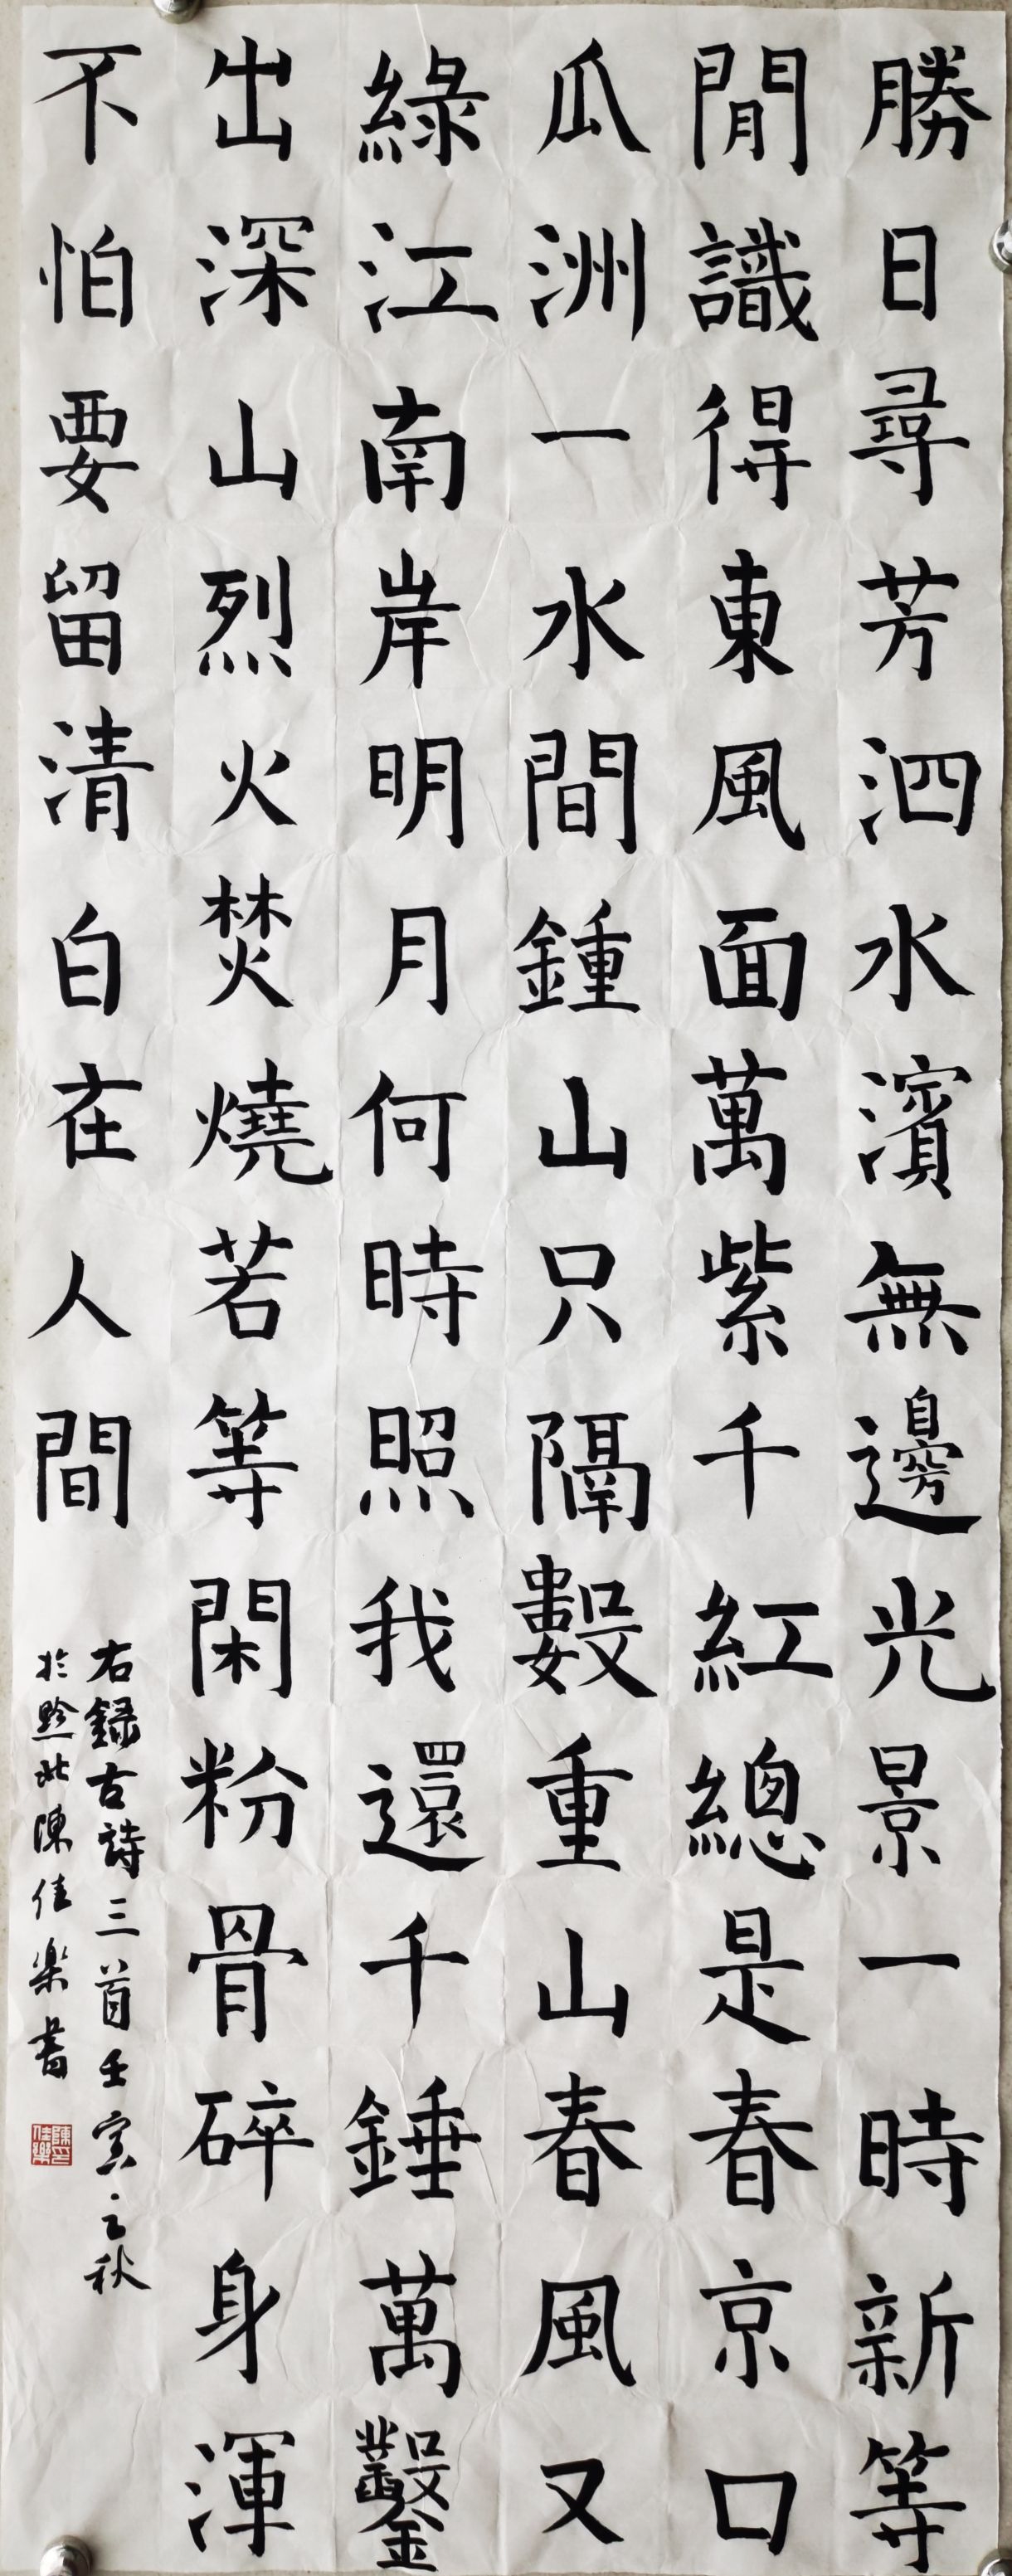 勝日尋芳泗水濱無邊光景一時新等
閒識得東風面萬紫千紅總是春京口
瓜洲一水間鍾山只隔數重山春風又
綠江南岸明月何時照我還千錘萬鑿
出深山烈火焚燒若等閑粉骨碎身渾
不怕要留清白在人間
右録古詩三首壬寅之秋
於黔北陳佳樂書
陳佳樂印